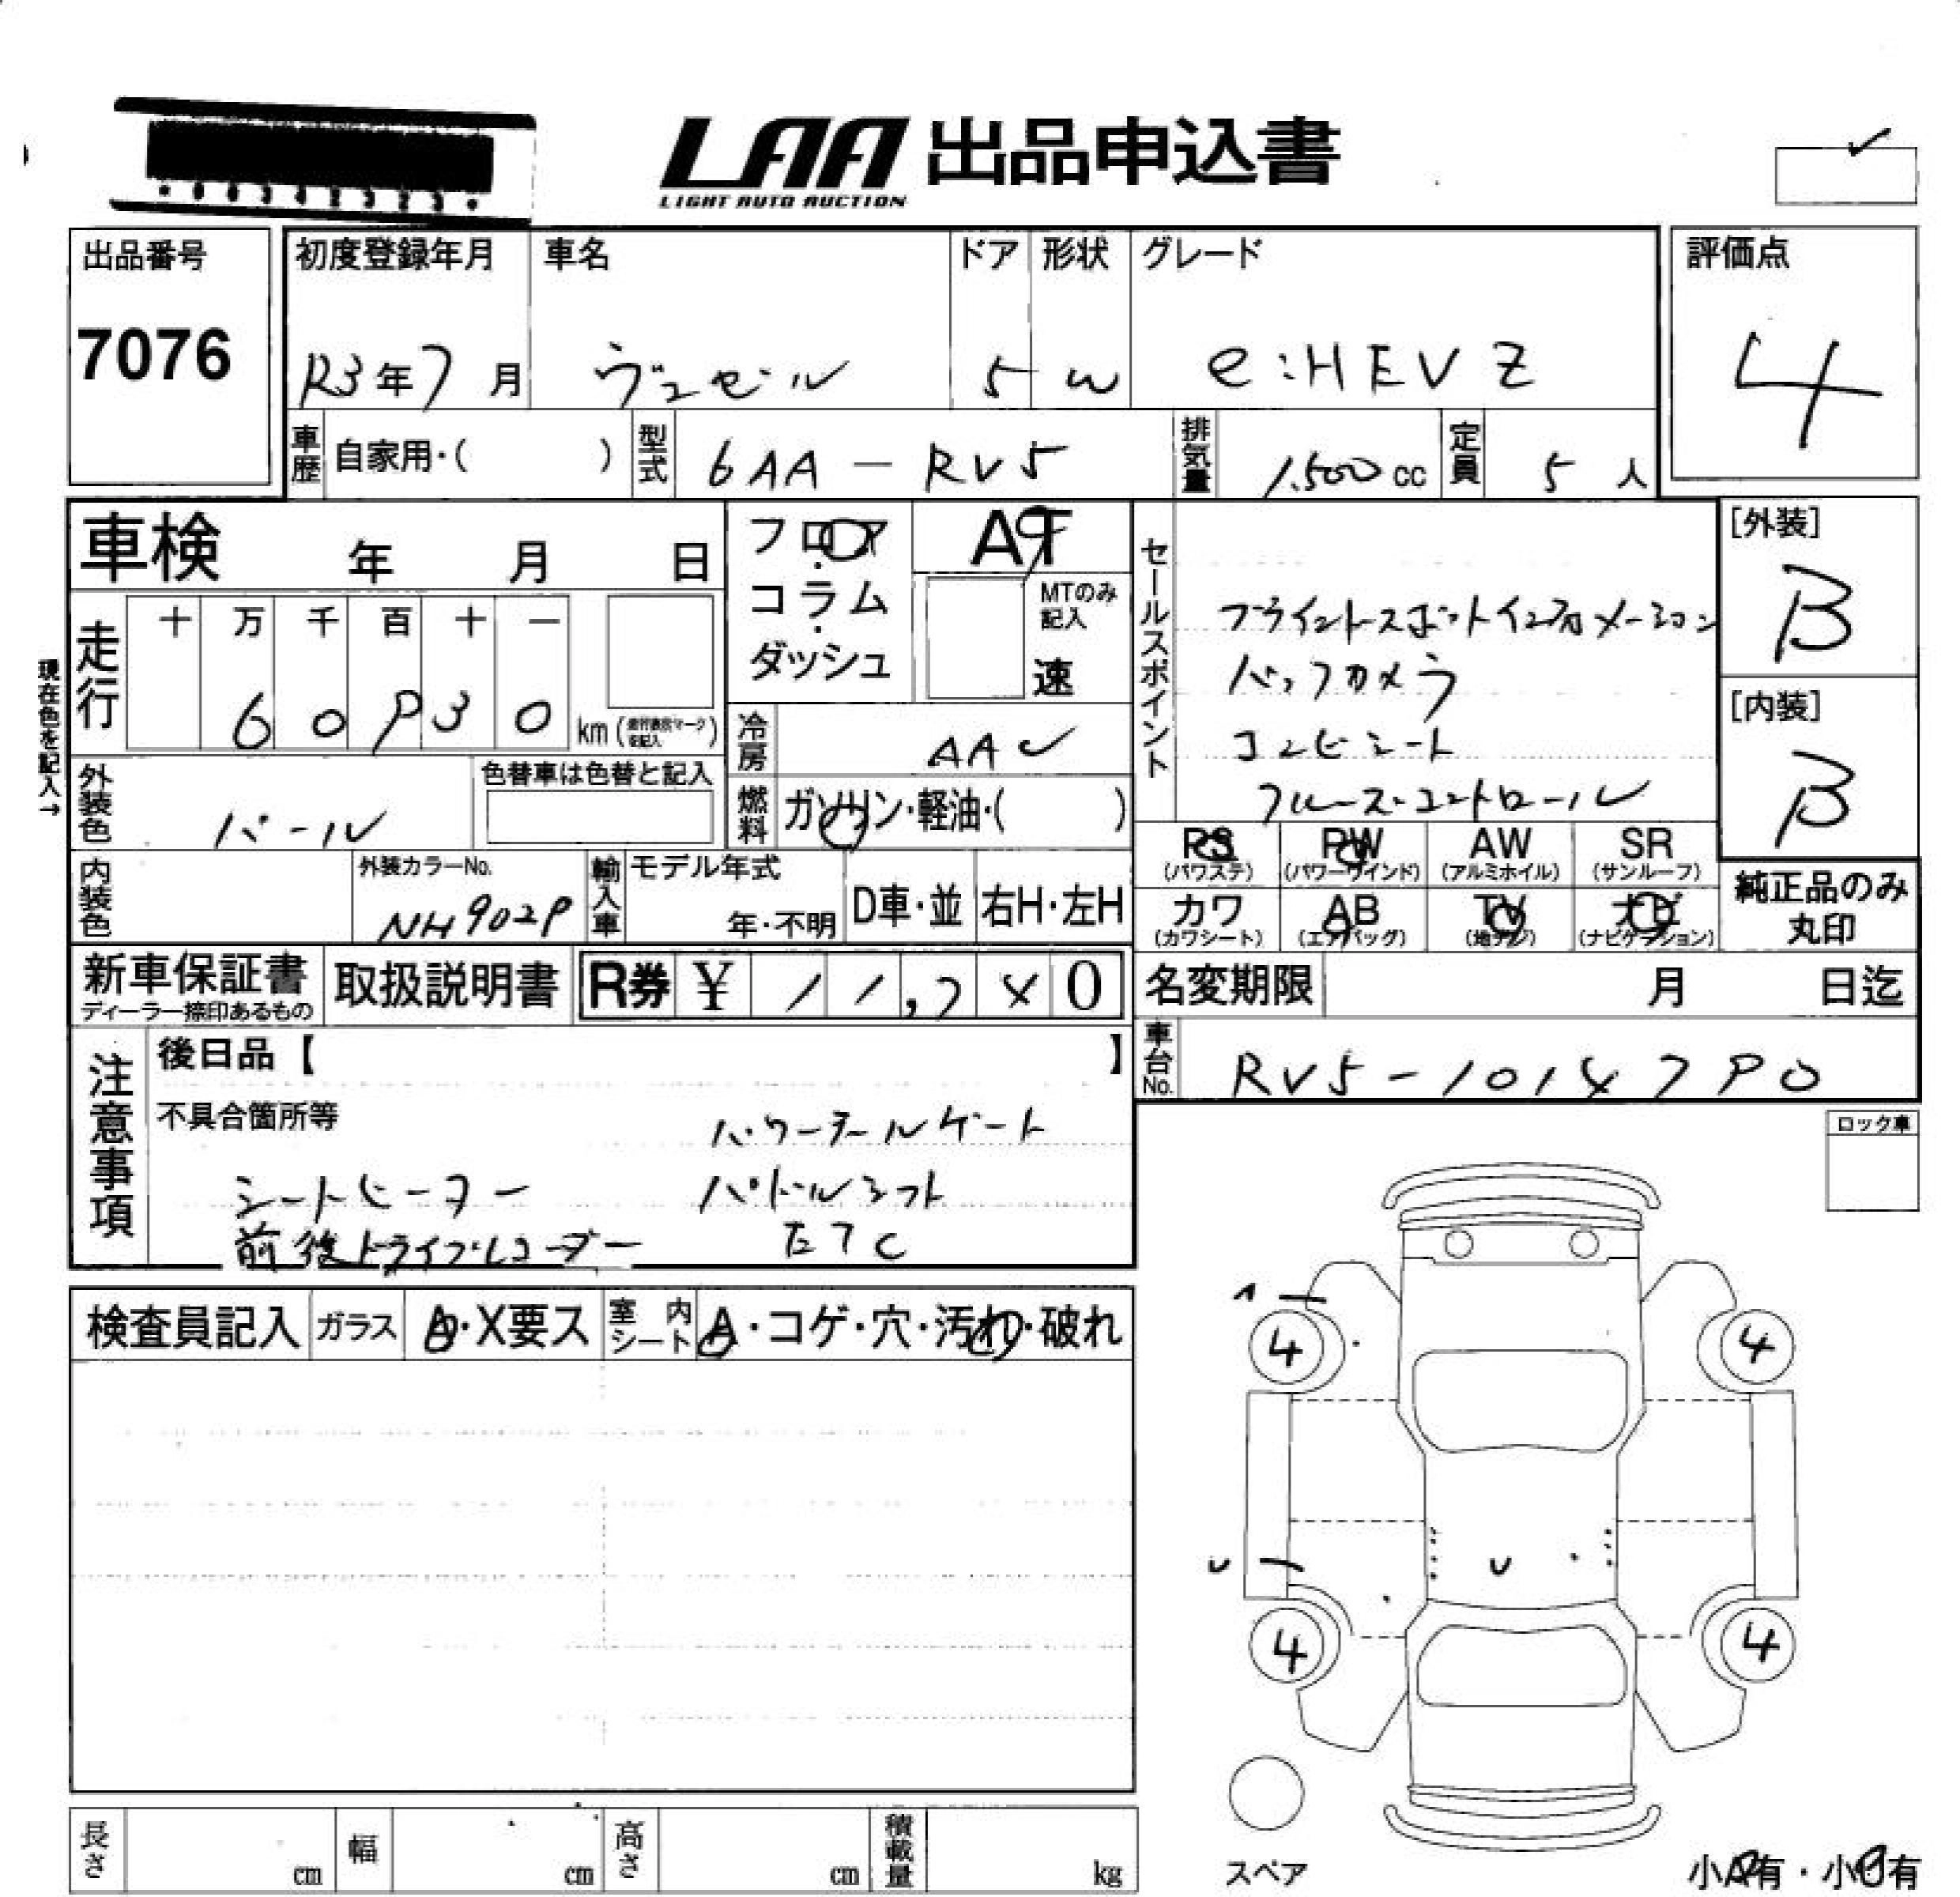 LAA 出品申込書
LIGHT AUTO AUCTION
出品番号
7076
初度登録年月
R3年7月
車名
ヴェゼル
ドア
5
形状
W
グレード
e:HEV Z
評価点
4
車歴
自家用・( )
型式
6AA-RV5
排気量
1,500cc
定員
5人
車検 年 月 日
フロア・コラム・ダッシュ
AT
MTのみ記入
速
セールスポイント
ブラインドスポットインフォメーション
バックカメラ
コンビシート
クルーズコントロール
[外装]
B
[内装]
B
現在色を記入→
走行
十 万 千 百 十 一
km
冷房
AAC
外装色
パール
色替車は色替と記入
燃料
ガソリン・軽油・( )
PS
(パワステ)
PW
(パワーウインド)
AW
(アルミホイル)
SR
(サンルーフ)
内装色
外装カラーNo.
NH902P
輸入車
モデル年式
年・不明
D車・並
右H・左H
カワ
(カワシート)
AB
(エアバッグ)
TV
(地デジ)
ナビ
(ナビゲーション)
純正品のみ
丸印
新車保証書
ディーラー捺印あるもの
取扱説明書
R券 ¥
名変期限 月 日迄
注意事項
後日品【 】
車台No.
不具合箇所等
パワーテールゲート
シートヒーター
パドルシフト
前後ドライブレコーダー
ETC
ロック車
検査員記入
ガラス
A・X要ス
室内シート
A・コゲ・穴・汚れ・破れ
4
4
4
4
スペア
長さ cm
幅 cm
高さ cm
積載量 kg
小A有・小U有